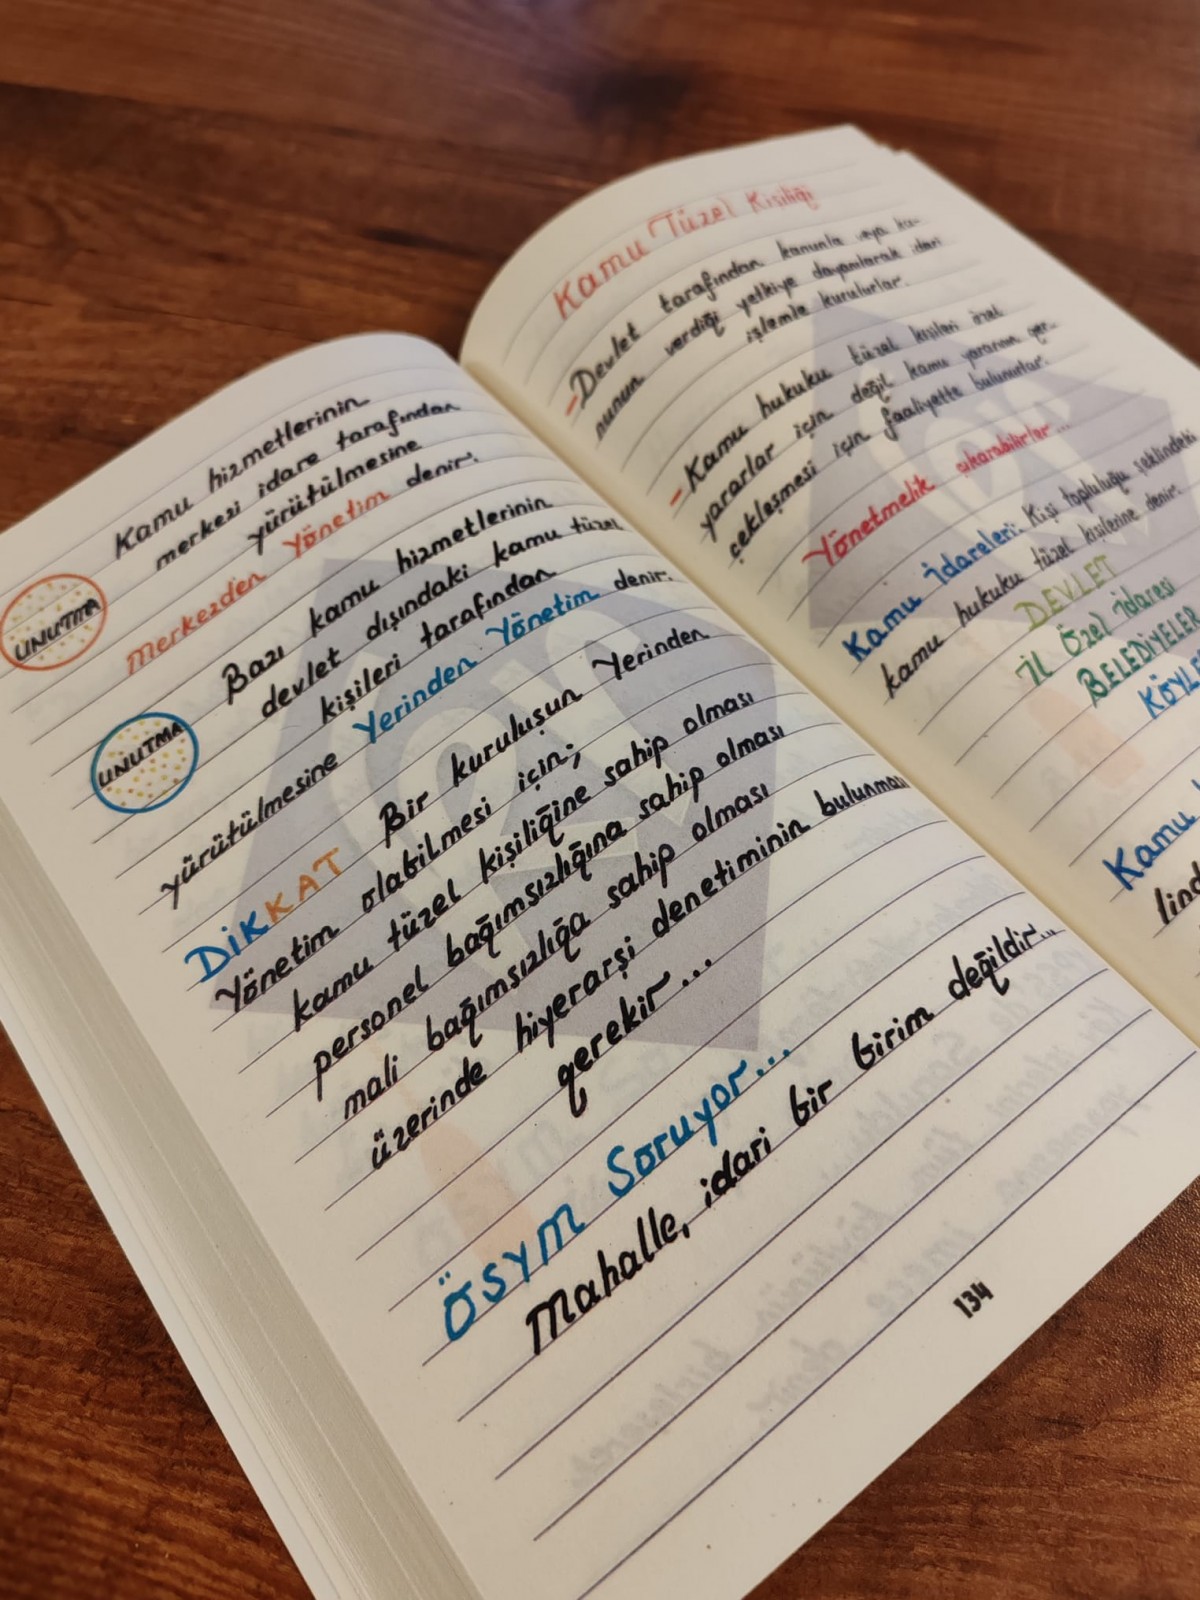 Kamu hizmetlerinin
merkezi idare tarafından
yürütülmesine
Merkezden Yönetim denir.
UNUTMA
Bazı kamu hizmetlerinin
devlet dışındaki kamu tüzel
kişileri tarafından
yürütülmesine Yerinden Yönetim denir.
UNUTMA
DİKKAT Bir kuruluşun Yerinden
Yönetim olabilmesi için;
kamu tüzel kişiliğine sahip olması
personel bağımsızlığına sahip olması
mali bağımsızlığa sahip olması
üzerinde hiyerarşi denetiminin bulunması
gerekir...
ÖSYM Soruyor...
Mahalle, idari bir birim değildir...
134
Kamu Tüzel Kişiliği
-Devlet tarafından kanunla veya ka-
nunun verdiği yetkiye dayanılarak idari
işlemle kurulurlar.
-Kamu hukuku tüzel kişileri özel
yararlar için değil kamu yararının ger-
çekleşmesi için faaliyette bulunurlar.
Yönetmelik çıkarabilirler...
Kamu İdareleri: Kişi topluluğu şeklindeki
kamu hukuku tüzel kişilerine denir.
DEVLET
İl Özel İdaresi
BELEDİYELER
KÖYLE
Kamu
lind